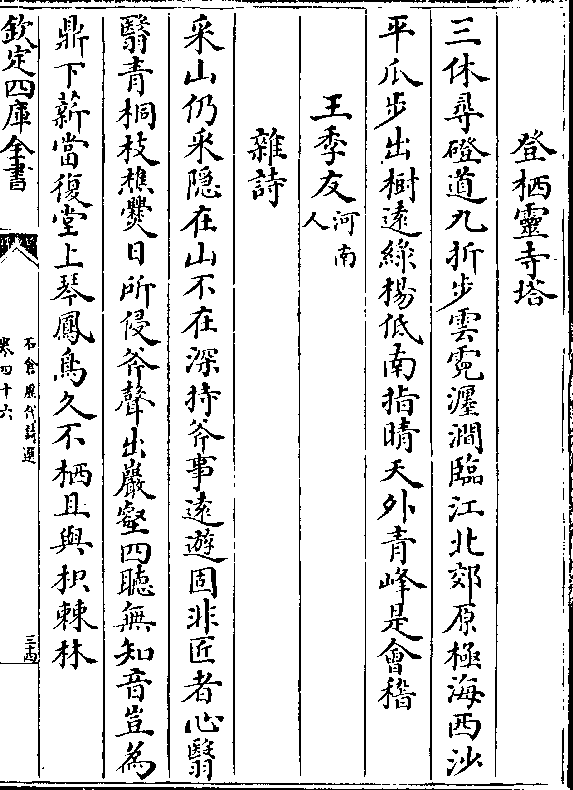 登栖靈寺塔
三休尋磴道九折步雲霓瀍澗臨江北郊原極海西沙
平瓜步出樹逺綠楊低南指晴天外青峰是會稽
王季友河南人
雜詩
采山仍采隠在山不在深持斧事逺遊固非匠者心翳
翳青桐枝樵爨日所侵斧聲出巖壑四聽無知音豈為
鼎下薪當復堂上琴鳳鳥久不栖且與枳棘林
欽定四庫全書
石倉歷代詩選
卷四十六
三十四